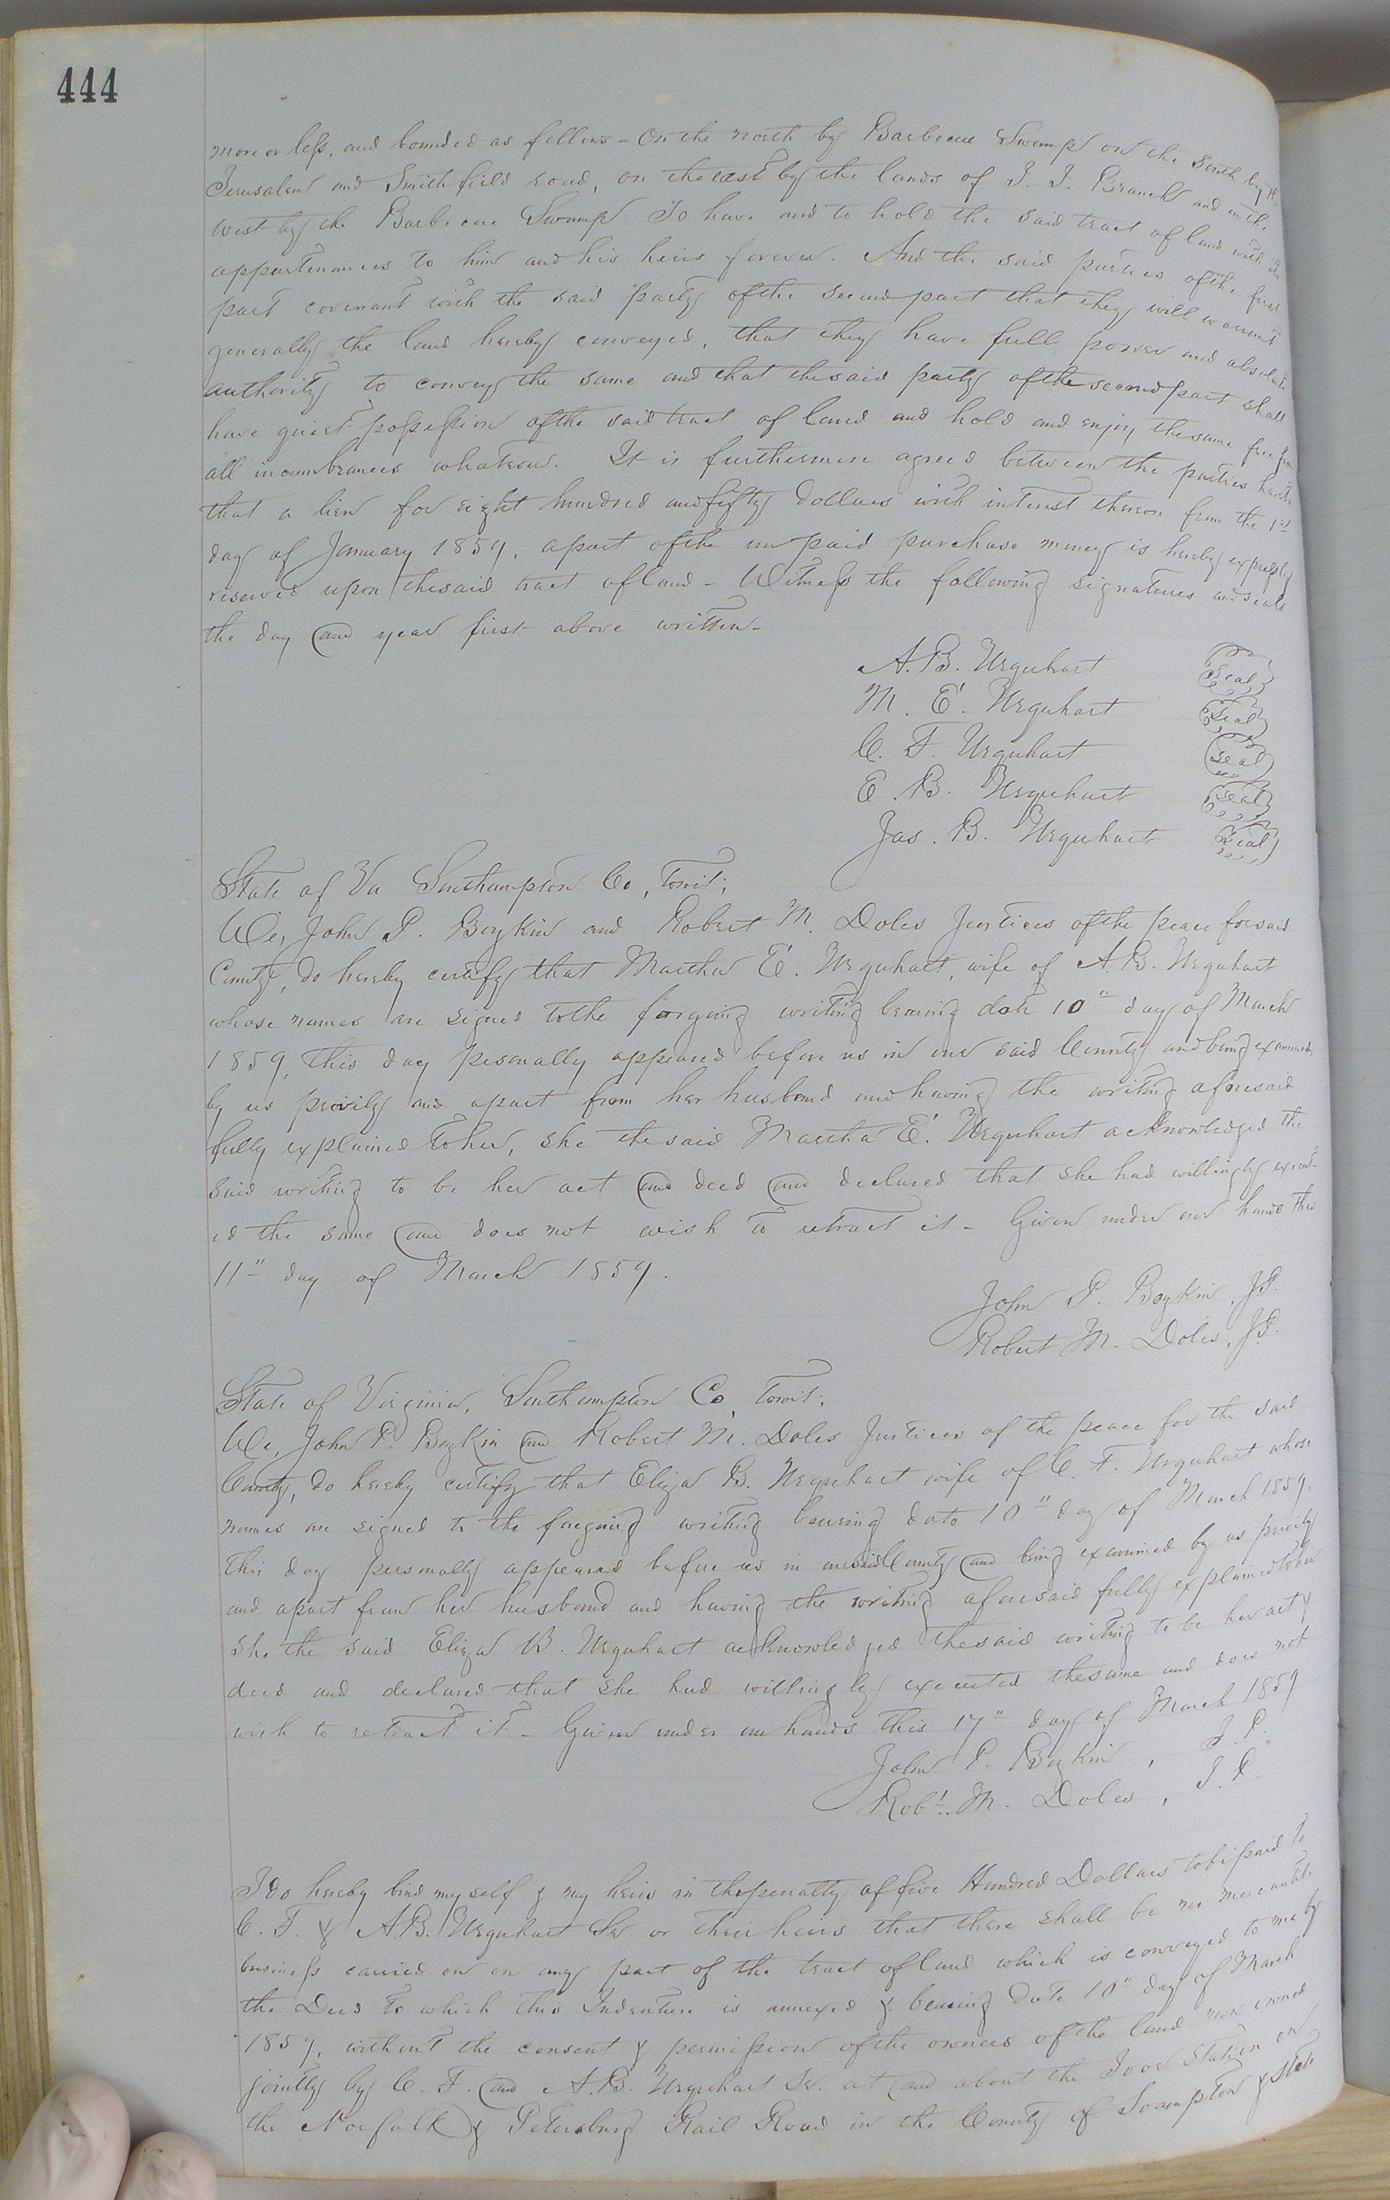 444
more or less, and bounded as follows - On the north by Barbecue Swamp on the South by the
Jerusalem and Smithfield road, on the east by the lands of J. J. Branch and on the
west by the Barbecue Swamp To have and to hold the said tract of land with the
appurtenances to him and his heirs forever. And the said parties of the first
part covenant with the said party of the second part that they will warrant
generally the land hereby conveyed, that they have full power and absolute
authority to convey the same and that the said party of the second part shall
have quiet possession of the said tract of land and hold and enjoy the same free from
all incumbrances whatever. It is furthermore agreed between the parties hereto
that a lien for eight hundred and fifty dollars with interest thereon from the 1st
day of January 1859, a part of the unpaid purchase money is hereby expressly
reserved upon the said tract of land - Witness the following signatures and seals
the day and year first above written -
A. B. Urquhart Seal
M. E. Urquhart Seal
C. F. Urquhart Seal
E. B. Urquhart Seal
Jas. B. Urquhart Seal
State of Va Southampton Co, Towit;
We, John P. Boykin and Robert M. Doles Justices of the peace for said
County, do hereby certify that Martha E. Urquhart, wife of A. B. Urquhart
whose names are signed to the forgoing writing bearing date 10" day of March
1859, this day pesonally appeared before us in our said County and being examined
by us privily and apart from her husband and having the writing aforesaid
fully explained to her, she the said Martha E. Urquhart acknowledged the
said writing to be her act and deed and declared that she had willingly execut-
ed the same and does not wish to retract it - Given under our hands this
11" day of March 1859.
John P. Boykin, J.P.
Robert M. Doles, J.P.
State of Virginia, Southampton Co, Towit;
We, John P. Boykin and Robert M. Doles Justices of the peace for the said
County, do hereby certify that Eliza B. Urquhart wife of C. F. Urquhart whose
names are signed to the foregoing writing bearing date 10" day of March 1859,
this day personally appeared before us in our said County and being examined by us privily
and apart from her husband and having the writing aforesaid fully explained to her
she the said Eliza B. Urquhart acknowledged the said writing to be her act &
deed and declared that she had willingly executed the same and does not
wish to retract it - Given under our hands this 17" day of March 1859
John P. Boykin, J. P.
Robt. M. Doles, J. P.
I do hereby bind myself & my heirs in the penalty of five Hundred Dollars to be paid to
C. F. & A. B. Urquhart Sr or their heirs that there shall be no mercantile
business carried on on any part of the tract of land which is conveyed to me by
the Deed to which this Indenture is annexed & bearing date 10" day of March
1859, without the consent & permission of the owners of the land now owned
jointly by C. F. and A. B. Urquhart Sr. at and about the Ivor Station on
the Norfolk & Petersburg Rail Road in the County of Soampton & State